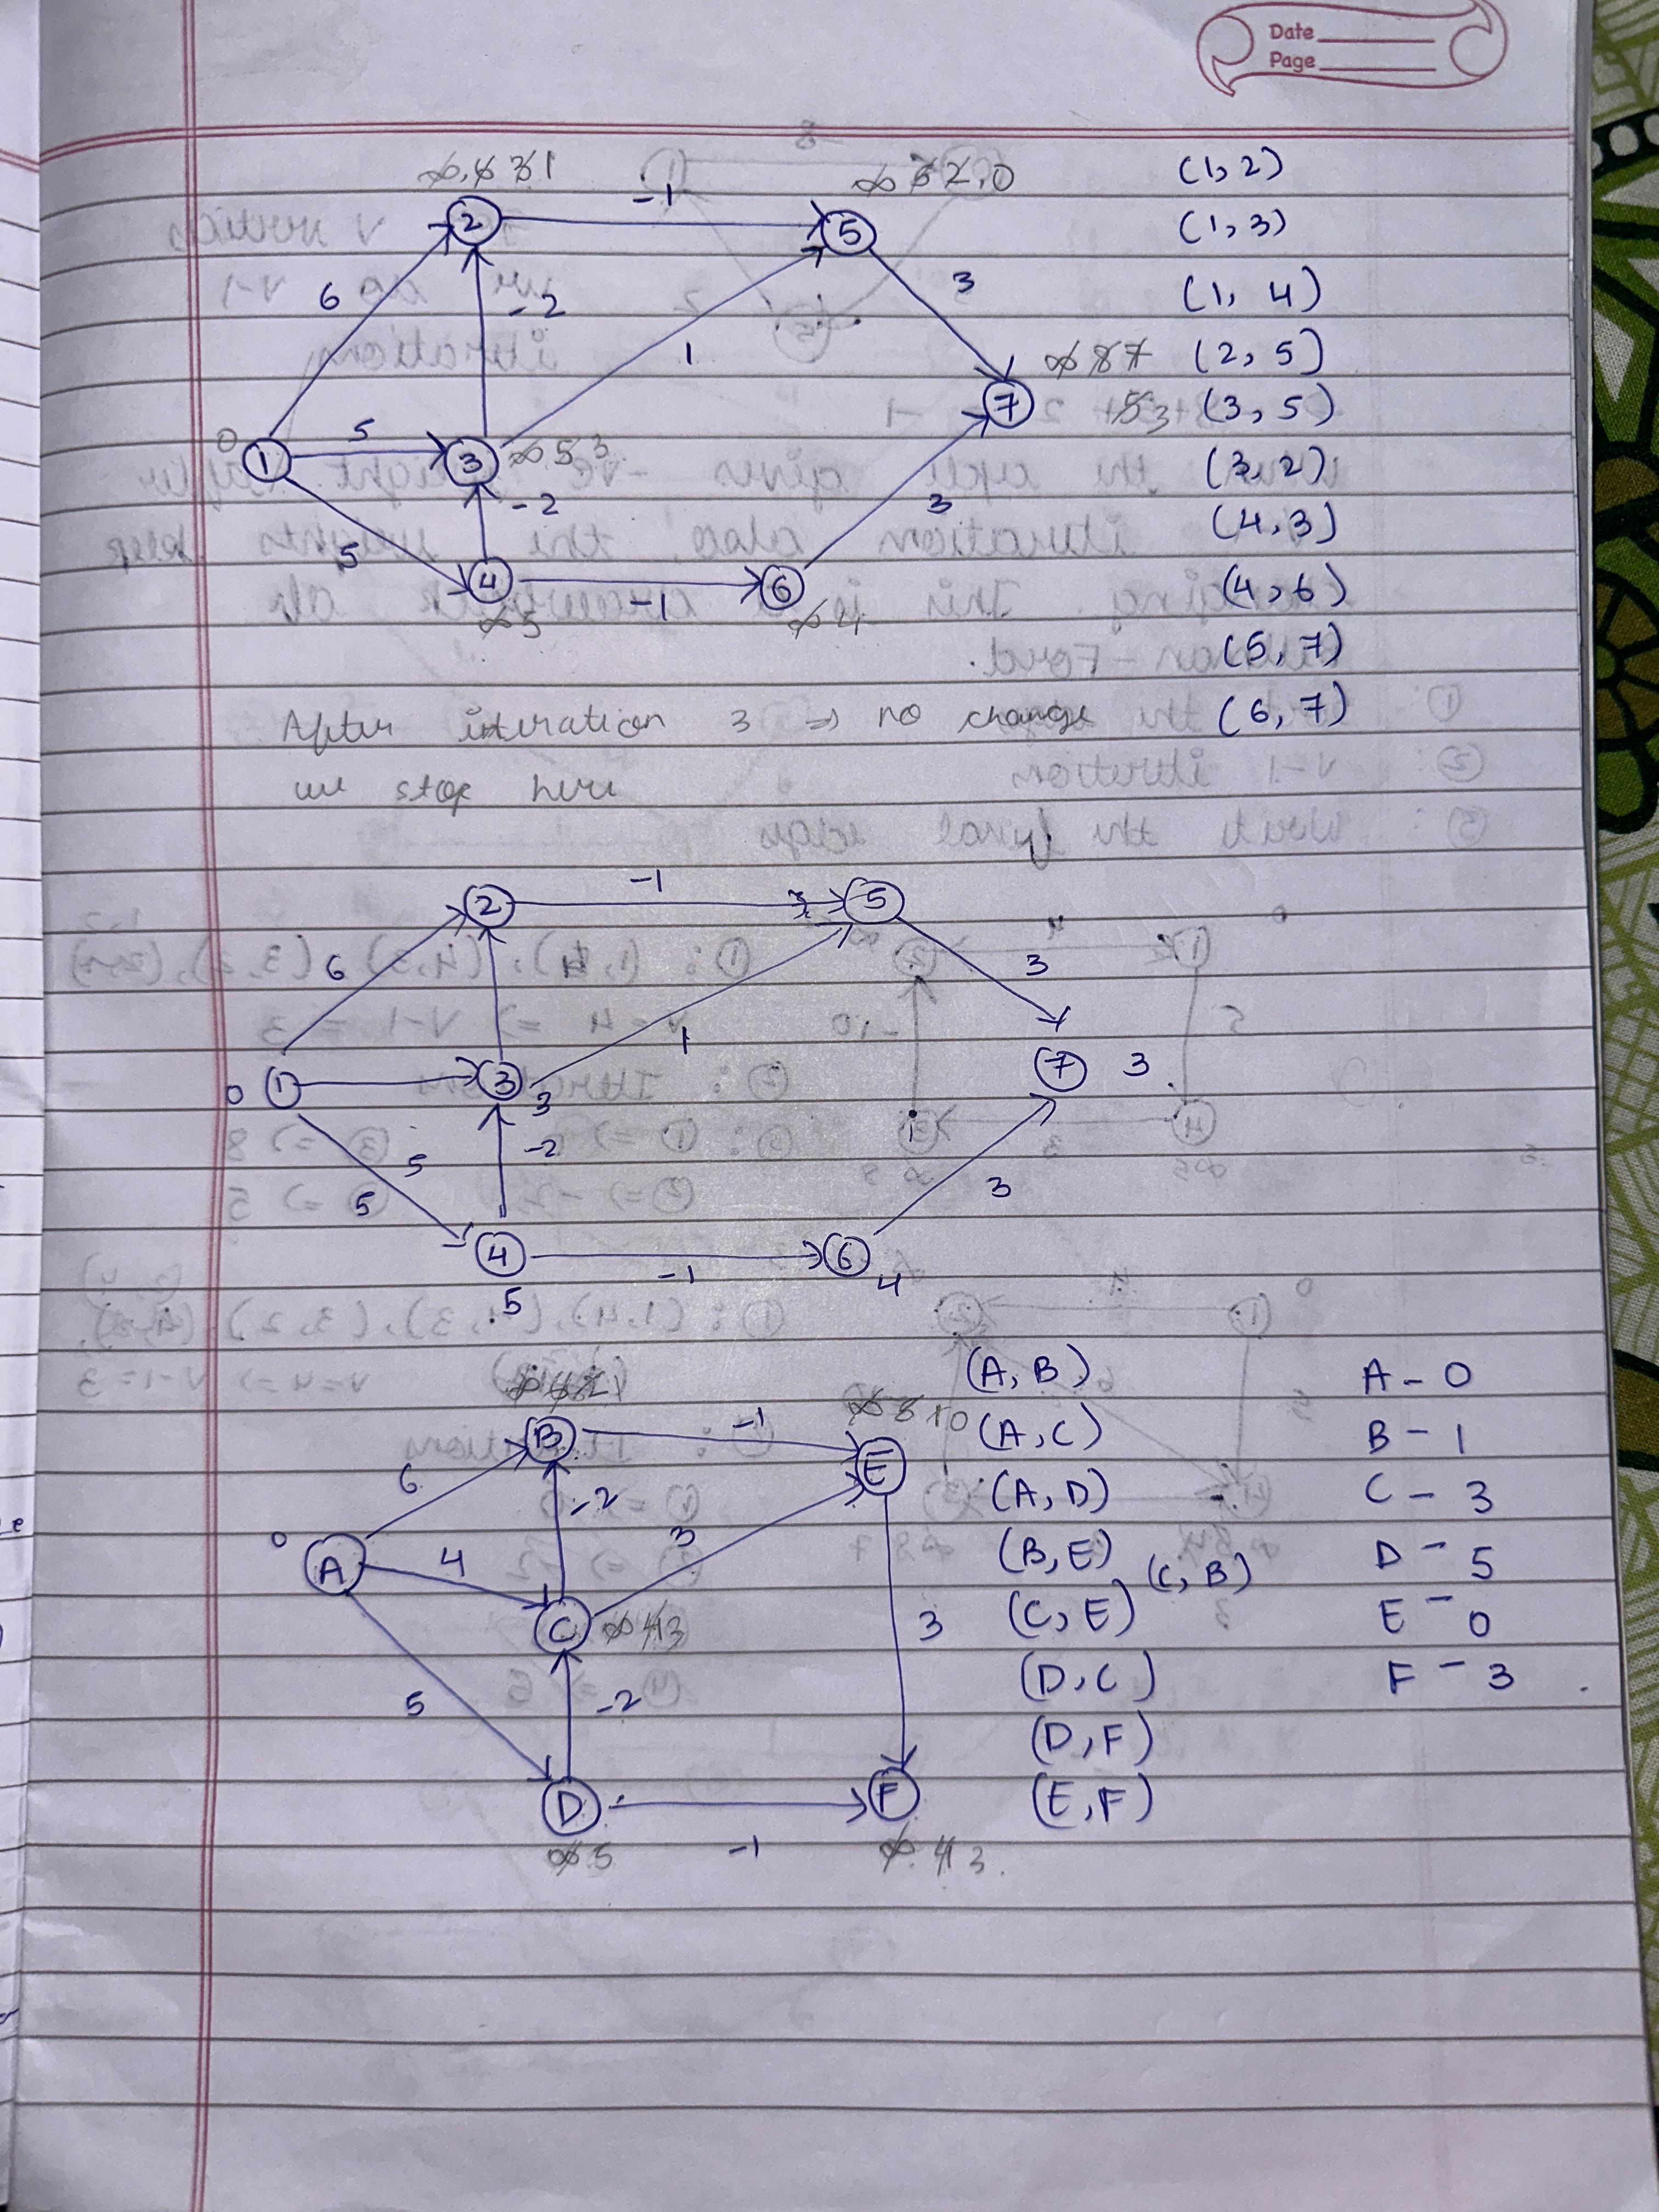 Date
Page
∞ 6 3 1
∞ 5 2 0
(1, 2)
2
-1
5
(1, 3)
6
-2
3
(1, 4)
1
∞ 8 7
(2, 5)
7
5 3
(3, 5)
0
1
5
3
∞ 5 3
(3, 2)
-2
3
(4, 3)
5
4
-1
6
(4, 6)
∞ 5
∞ 4
(5, 7)
After iteration 3 ⇒ no change
(6, 7)
we stop here
2
-1
5
6
3
1
0
1
3
3
7
3
5
-2
5
3
4
-1
6
4
5
(A, B)
A - 0
∞ 6 2 1
B
-1
∞ 5 1 0
E
(A, C)
B - 1
6
-2
(A, D)
C - 3
0
A
4
3
(B, E)
(C, B)
D - 5
C
∞ 4 3
3
(C, E)
E - 0
5
-2
(D, C)
F - 3
(D, F)
D
F
(E, F)
∞ 5
-1
∞ 4 3